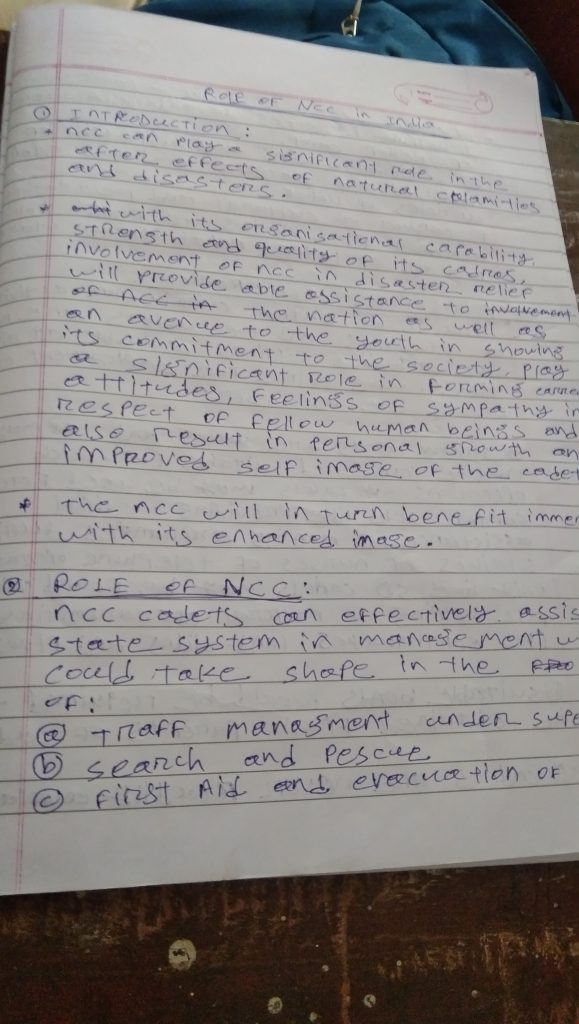 Role of Ncc in India
① INTRODUCTION :
* ncc can play a significant role in the
after effects of natural calamities
and disasters.
* with its organisational capability,
strength and quality of its cadres,
involvement of ncc in disaster relief
will provide able assistance to involvement
of ncc in the nation as well as
an avenue to the youth in showing
its commitment to the society, play
a significant role in forming
attitudes, feelings of sympathy in
respect of fellow human beings and
also result in personal growth an
improved self image of the cadet
* the ncc will in turn benefit imme
with its enhanced image.
② ROLE OF NCC:
ncc cadets can effectively assis
state system in management
could take shape in the
of:
ⓐ traff managment under supe
ⓑ search and Pescue
ⓒ first Aid and evacuation of